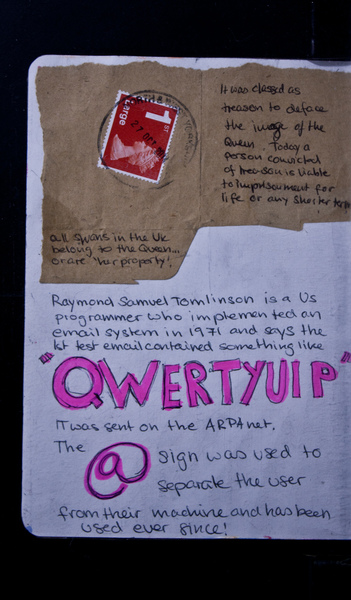 1st
Large
27 DEC
It was classed as
treason to deface
the image of the
Queen. Today a
person convicted
of treason is liable
to imprisonment for
life or any shorter term
all swans in the UK
belong to the Queen...
or are 'her property'.
Raymond Samuel Tomlinson is a US
programmer who implemented an
email system in 1971 and says the
1st test email contained something like
"QWERTYUIP"
IT was sent on the ARPAnet.
The @ sign was used to
separate the user
from their machine and has been
used ever since!